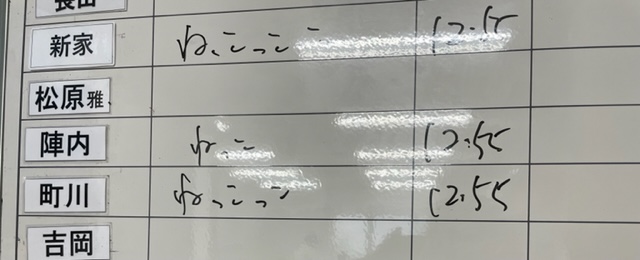 長田
新家 ねっこっこ 12.55
松原雅
陣内 ねっこ 12.55
町川 ねっこっこ 12.55
吉岡